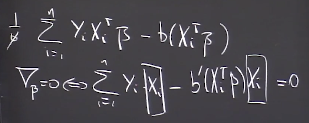 1/φ Σ_{i=1}^{n} Y_i X_i^T β - b(X_i^T β)
∇_β = 0 ⇔ Σ_{i=1}^{n} Y_i X_i - b'(X_i^T β) X_i = 0